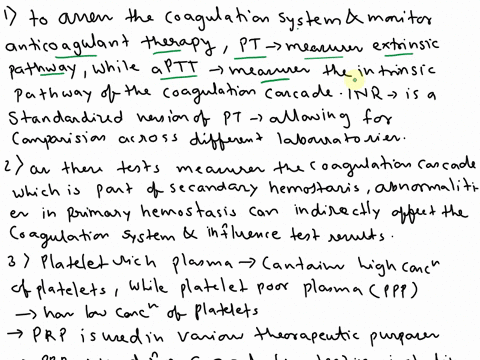 1) to assess the coagulation system & monitor
anticoagulant therapy, PT → measures extrinsic
pathway, while aPTT → measures the intrinsic
pathway of the coagulation cascade. INR → is a
Standardized version of PT → allowing for
Comparision across different laboratories.
2) as these tests measures the coagulation cascade
which is part of secondary hemostasis, abnormaliti
es in primary hemostasis can indirectly affect the
Coagulation system & influence test results.
3) Platelet rich plasma → Contains high concⁿ
of platelets, while platelet poor plasma (PPP)
→ has low concⁿ of platelets
→ PRP is used in various theorapeutic purposes